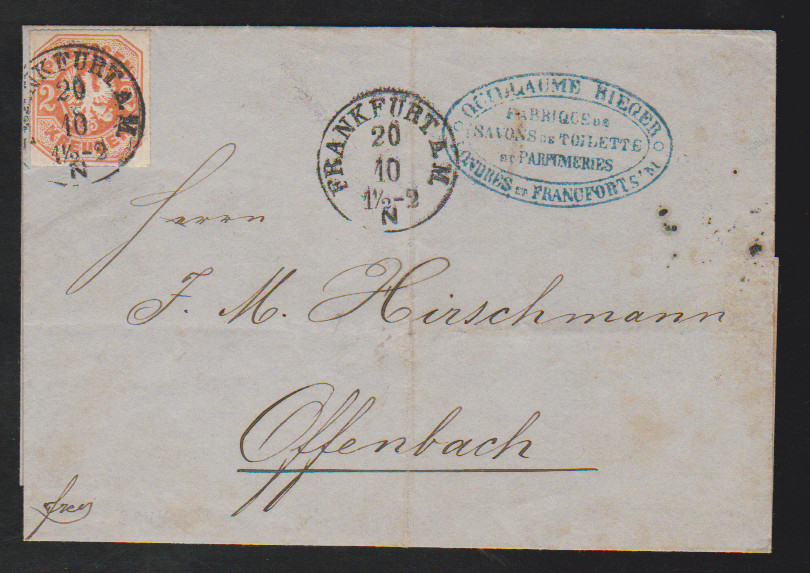 FRANKFURT A. M.
20
10
1½-2
N
2
KREUZER
FRANKFURT A. M.
20
10
1½-2
N
GUILLAUME RIEGER
FABRIQUE DE
SAVONS DE TOILETTE
ET PARFUMERIES
LONDRES ET FRANCFORT S/M
Herrn
J. M. Hirschmann
Offenbach
frco